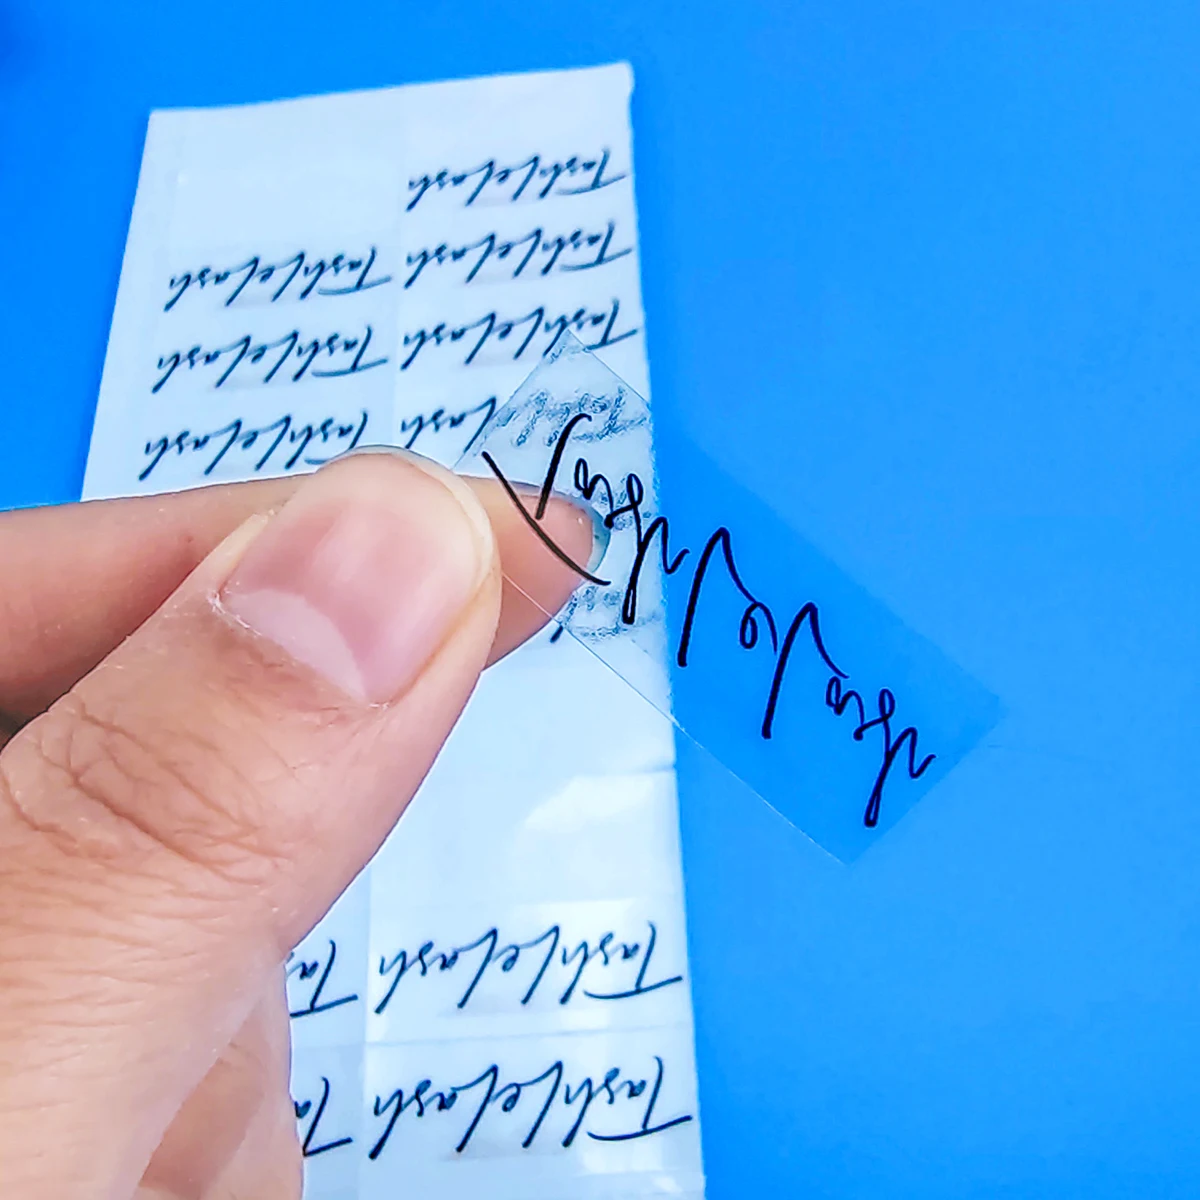 TashLeLash
TashLeLash
TashLeLash
TashLeLash
TashLeLash
TashLeLash
Lash
TashLeLash
TashLeLash
Ta
TashLeLash
Ta
TashLeLash